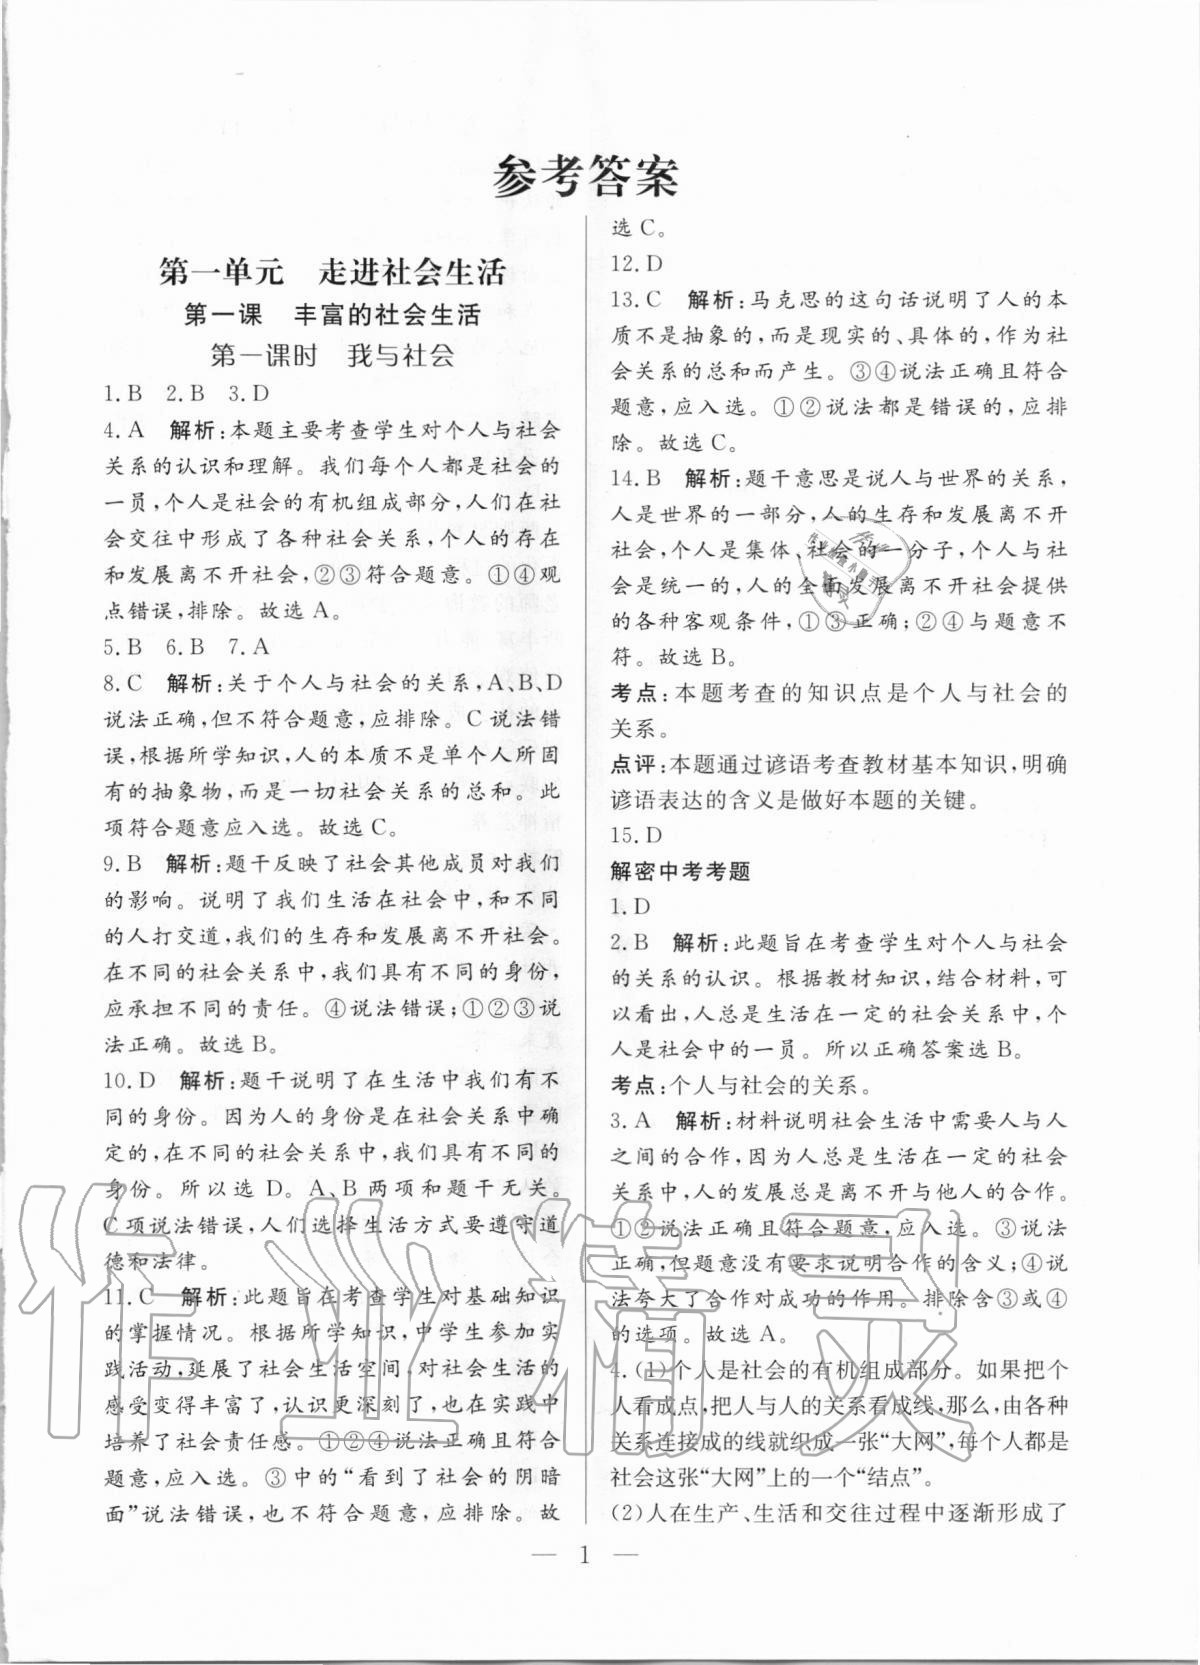 参考答案
第一单元　走进社会生活
第一课　丰富的社会生活
第一课时　我与社会
1.B　2.B　3.D
4.A　解析:本题主要考查学生对个人与社会
关系的认识和理解。我们每个人都是社会的
一员,个人是社会的有机组成部分,人们在社
会交往中形成了各种社会关系,个人的存在
和发展离不开社会,②③符合题意。①④观
点错误,排除。故选A。
5.B　6.B　7.A
8.C　解析:关于个人与社会的关系,A、B、D
说法正确,但不符合题意,应排除。C说法错
误,根据所学知识,人的本质不是单个人所固
有的抽象物,而是一切社会关系的总和。此
项符合题意应入选。故选C。
9.B　解析:题干反映了社会其他成员对我们
的影响。说明了我们生活在社会中,和不同
的人打交道,我们的生存和发展离不开社会。
在不同的社会关系中,我们具有不同的身份,
应承担不同的责任。④说法错误;①②③说
法正确。故选B。
10.D　解析:题干说明了在生活中我们有不
同的身份。因为人的身份是在社会关系中确
定的,在不同的社会关系中,我们具有不同的
身份。所以选D。A、B两项和题干无关。
C项说法错误,人们选择生活方式要遵守道
德和法律。
11.C　解析:此题旨在考查学生对基础知识
的掌握情况。根据所学知识,中学生参加实
践活动,延展了社会生活空间,对社会生活的
感受变得丰富了,认识更深刻了,也在实践中
培养了社会责任感。①②④说法正确且符合
题意,应入选。③中的“看到了社会的阴暗
面”说法错误,也不符合题意,应排除。故
选C。
12.D
13.C　解析:马克思的这句话说明了人的本
质不是抽象的,而是现实的、具体的,作为社
会关系的总和而产生。③④说法正确且符合
题意,应入选。①②说法都是错误的,应排
除。故选C。
14.B　解析:题干意思是说人与世界的关系,
人是世界的一部分,人的生存和发展离不开
社会,个人是集体、社会的一分子,个人与社
会是统一的,人的全面发展离不开社会提供
的各种客观条件,①③正确;②④与题意不
符。故选B。
考点:本题考查的知识点是个人与社会的
关系。
点评:本题通过谚语考查教材基本知识,明确
谚语表达的含义是做好本题的关键。
15.D
解密中考考题
1.D
2.B　解析:此题旨在考查学生对个人与社会
的关系的认识。根据教材知识,结合材料,可
以看出,人总是生活在一定的社会关系中,个
人是社会中的一员。所以正确答案选B。
考点:个人与社会的关系。
3.A　解析:材料说明社会生活中需要人与人
之间的合作,因为人总是生活在一定的社会
关系中,人的发展总是离不开与他人的合作。
①②说法正确且符合题意,应入选。③说法
正确,但题意没有要求说明合作的含义;④说
法夸大了合作对成功的作用。排除含③或④
的选项。故选A。
4.(1)个人是社会的有机组成部分。如果把个
人看成点,把人与人的关系看成线,那么,由各种
关系连接成的线就织成一张“大网”,每个人都是
社会这张“大网”上的一个“结点”。
(2)人在生产、生活和交往过程中逐渐形成了
— 1 —
作业精灵